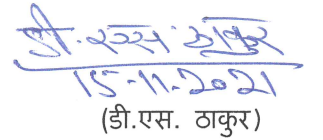 डी.एस. ठाकुर
15-11-2021
(डी.एस. ठाकुर)